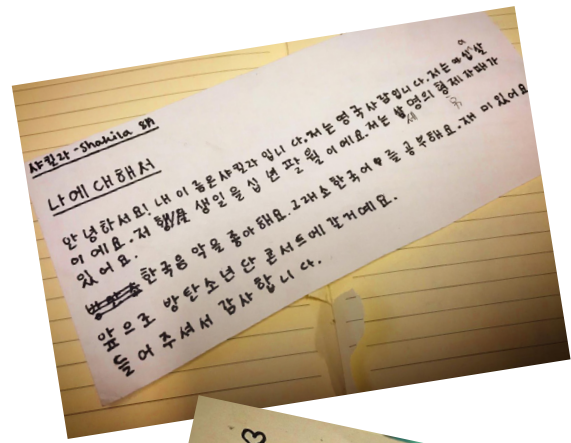 샤킬라 - Shakila
나에 대해서
안녕하서요! 내 이름은 샤킬라 입니다. 저는 영국사람입니다. 저는 십 살
이에요. 저 생일을 십 년 팔 월이에요. 저는 명의 형제 자매가
세
있어요.
한국음악을 좋아해요. 그래소 한국어♥를 공부해요. 재미 있어요
앞으로 방탄소년단 콘서트에 갈거예요.
들어주셔서 감사합니다.